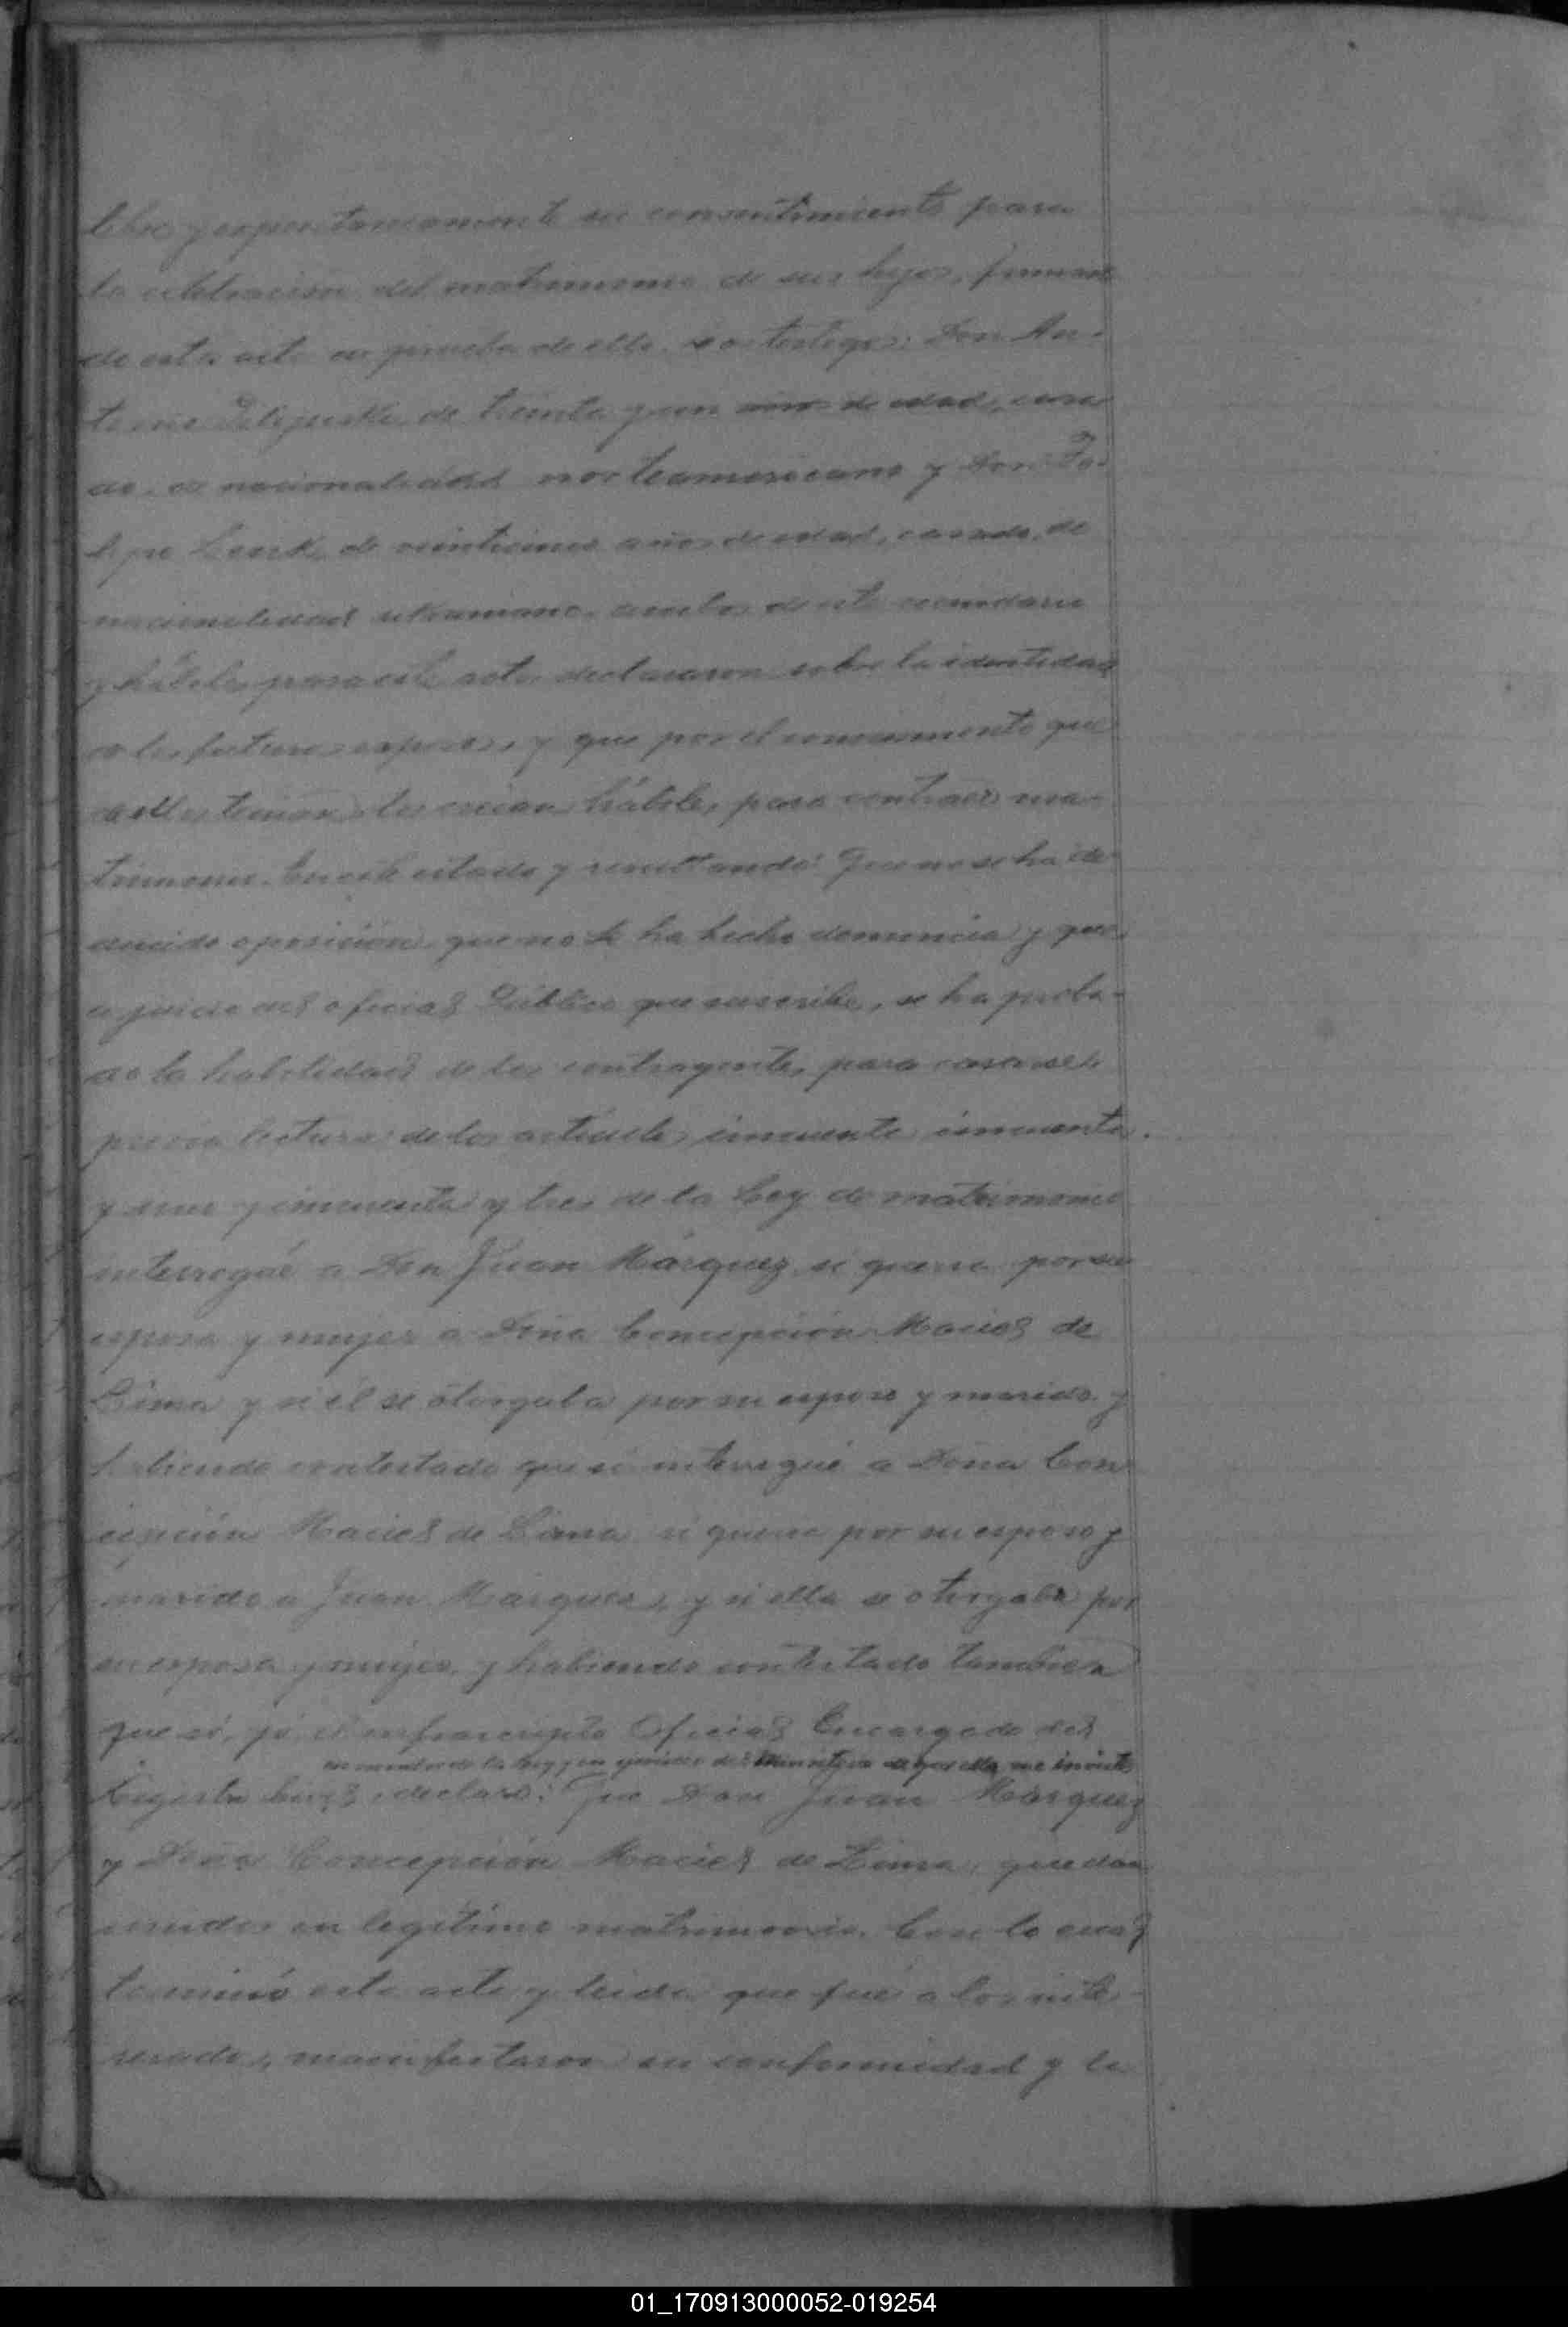 libre y espontaneamente su consentimiento para
la celebracion del matrimonio de sus hijos, firmando
de esta acta en prueba de ello. Los testigos: Don An-
tonio de treinta y un años de edad, casa-
do, de nacionalidad norteamericano y Don Fe-
lipe de veinticinco años de edad, casado, de
nacionalidad ukraniano, ambos de este vecindario
y hábiles para este acto, declararon sobre la identidad
de los futuros esposos, y que por el conocimiento que
de ellos tenian los creian hábiles para contraer ma-
trimonio. En este estado y resultando: Que no se ha de-
ducido oposición, que no se ha hecho denuncia y que
a juicio del oficial Público que suscribe, se ha proba-
do la habilidad de los contrayentes para casarse,
previa lectura de los articulos cincuenta, cincuenta
y uno y cincuenta y tres de la Ley de matrimonio
interrogué a Don Juan Márquez si queria por su
esposa y mujer a Doña Concepción Maciel de
Lima y si él se otorgaba por su esposo y marido y
habiendo contestado que sí interrogué a Doña Con
cepción Maciel de Lima si queria por su esposo y
marido a Juan Marquez, y si ella se otorgaba por
su esposa y mujer, y habiendo contestado tambien
que sí, yo el infrascripto Oficial Encargado del
en nombre de la ley y en ejercicio del ministerio que por ella me inviste
Registro Civil declaro: Que Don Juan Márquez
y Doña Concepción Maciel de Lima, quedan
unidos en legítimo matrimonio. Con lo cual
terminó este acto y leida que fué a los inte-
resados, manifestaron su conformidad y la
01_170913000052-019254